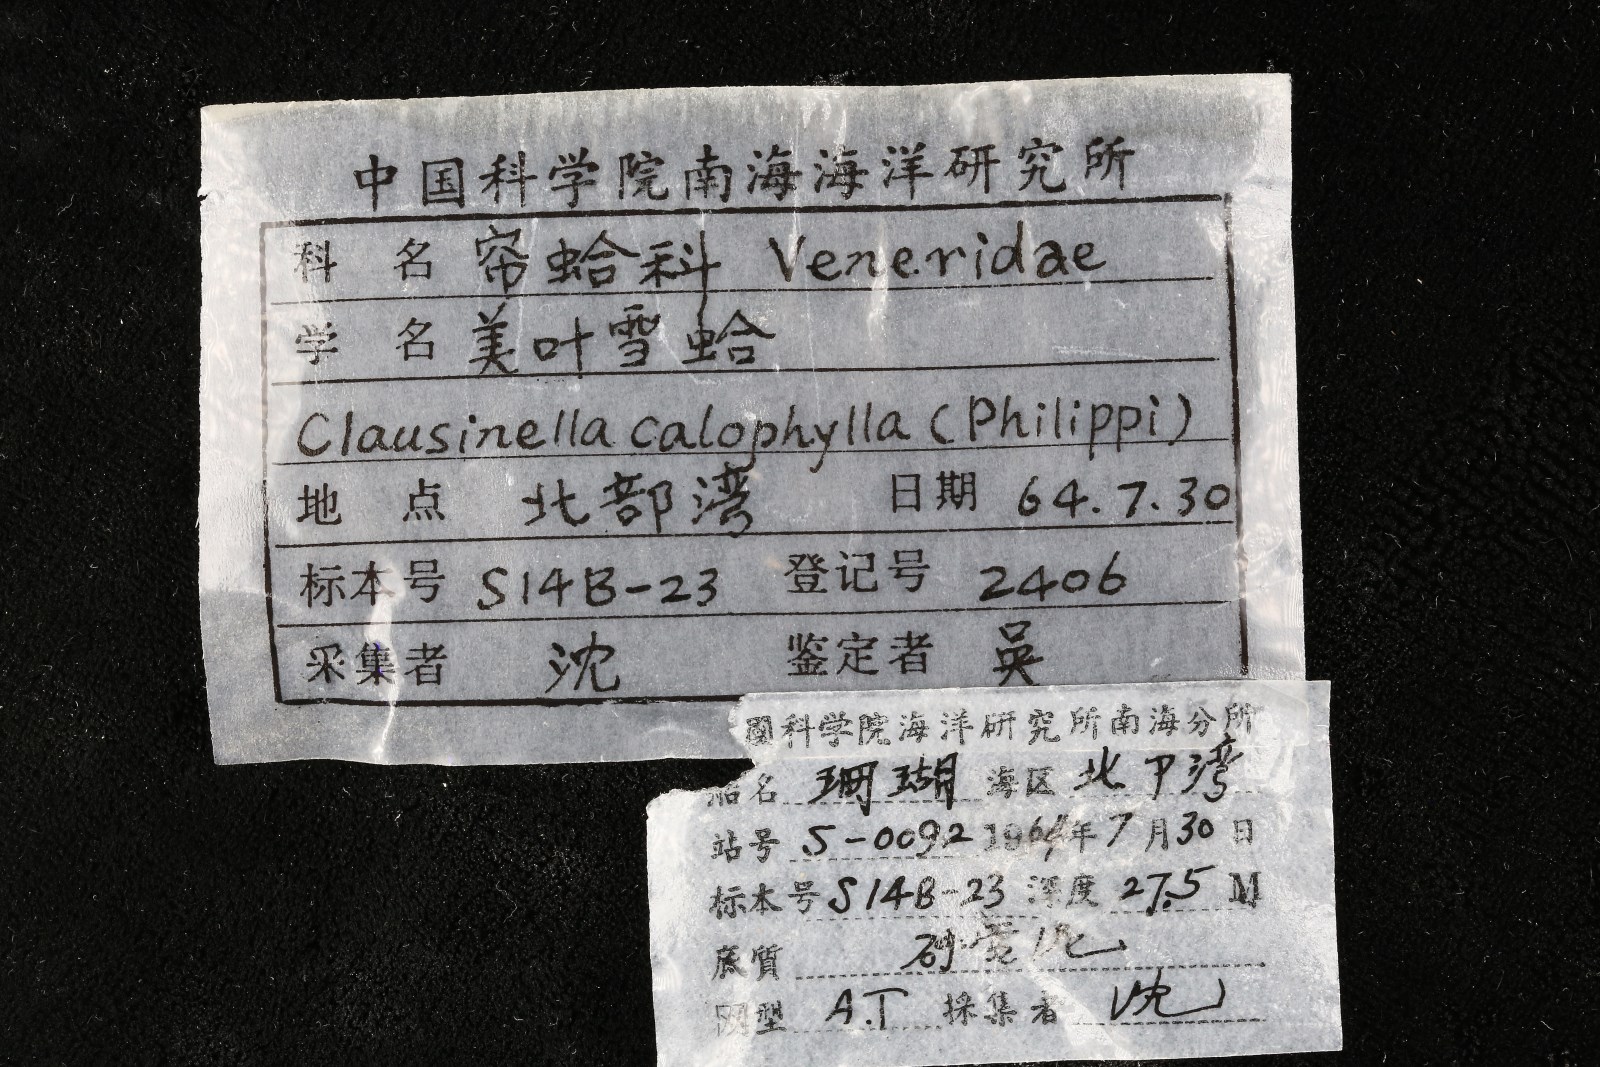 中国科学院南海海洋研究所
科 名 帘蛤科 Veneridae
学 名 美叶雪蛤
Clausinella calophylla (Philippi)
地 点 北部湾 日期 64.7.30
标本号 S14B-23 登记号 2406
采集者 沈 鉴定者 吴
國科学院海洋研究所南海分所
船名 珊瑚 海区 北卩湾
站号 S-0092 1964年7月30日
标本号 S14B-23 深度 27.5 M
底質 砂
网型 A.T 採集者 沈